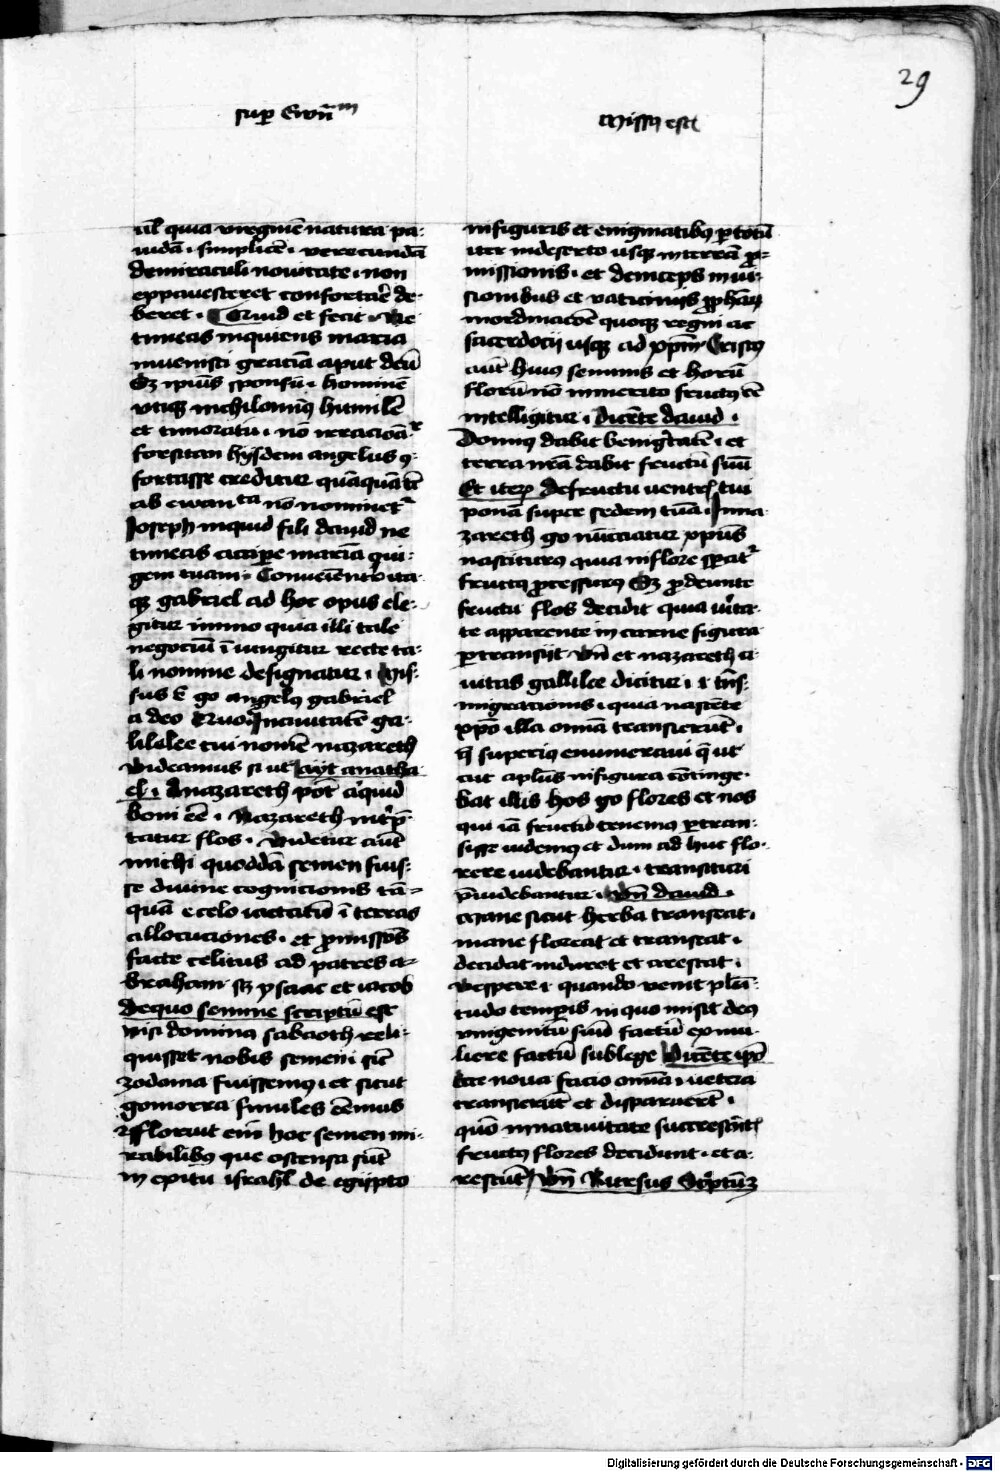 29
sup Ewñm
Missus est
ul quia virgineē natura pa-
uidā · simplicē · verecundā
de miraculi nouitate · non
expauesceret confortare de-
beret · Quid et fecit · Ne
timeas inquiens maria
inuenisti graciā aput deū
Sz ipius sponsū · hominē
vtiqz nichilominꝰ humilē
et timoratū · nō irracioā
forsitan hijsdem angelus
fortasse creditur quāquā tc̄
ab ewanta nō nominet
Joseph inquid fili dauid ne
timeas accipe mariā qui-
gem tuam · Conueniēntr ita-
qz gabriel ad hoc opus ele-
gitur immo quia illi tale
negociū iniungitur recte ta-
li nomine designatur · Mis-
sus ē go angelꝰ gabriel
a deo Quo Jn ciuitatē ga-
lilelee cui nomē nazareth
Videamus si ut ayt natha-
el · A nazareth pot̄ aliquid
boni eē · Nazareth intp̄-
tatur flos · Videtur aūt
michi quoddā semen fuis-
se diuine cognicionis tā-
quā e celo iactatū ī terras
allocuciones · et promissōes
facte celitus ad patres a-
braham sz ysaac et iacob
de quo semine scriptū est
Nisi dominꝰ sabaoth reli-
quisset nobis semen sic̄
zodoma fuissemꝰ · et sicut
gomorra similes eēmus
Floruit em̄ hoc semen mi-
rabilibꝰ que ostensa sūt
in exitu israhl de egipto
in figuris et enigmatibꝰ p totū
iter in deserto usqz in terrā p-
missionis · et deinceps in ui-
sionibus et vaticiniis pphaꝝ
in ordinacōe quoqz regni ac
sacerdocij usqz ad xpm Cristꝰ
aūt huiꝰ seminis et horū
florū nō inmerito fructꝰ eē
intelligitur · dicēte dauid ·
Dominꝰ dabit benigtatē · et
terra nrā dabit fructū suū
Et iteꝝ de fructu uentrꝭ tui
ponā super sedem tuā · Jn na-
zareth go nūciatur xpius
nasciturꝰ quia in flore spatr
fructꝰ processurꝰ Sz prodeunte
fructu flos decidit quia uita-
te apparente in carne figura
ptransijt vn̄ et nazareth ci-
uitas galilee dicitur · i trns-
migracionis · quia nascēte
xpo illa omā transierūt ·
q̄ superiꝰ enumeraui q̄ ut
ait aplus in figura cōtinge-
bat illis hos go flores et nos
qui iā fructū tenemꝰ ptran-
sisse uidemꝰ et dum ad huc flo-
rere uidebantur · transituri
p̄uidebantur · vn̄ dauid ·
Mane sicut herba transeat ·
mane floreat et transeat ·
decidat induret et arescat ·
Vespere i quando venit plēi-
tudo temporis in quo misit deꝰ
vnigenitū suū factū ex mu-
liere factū sub lege dicēte ipo
Ecce noua facio omīa · uetera
transierūt et disparuert ·
quō in natiuitate succrescētꝭ
fructꝰ flores decidunt · et a-
rescūt vn̄ Rursus Scptū
Digitalisierung gefördert durch die Deutsche Forschungsgemeinschaft - DFG